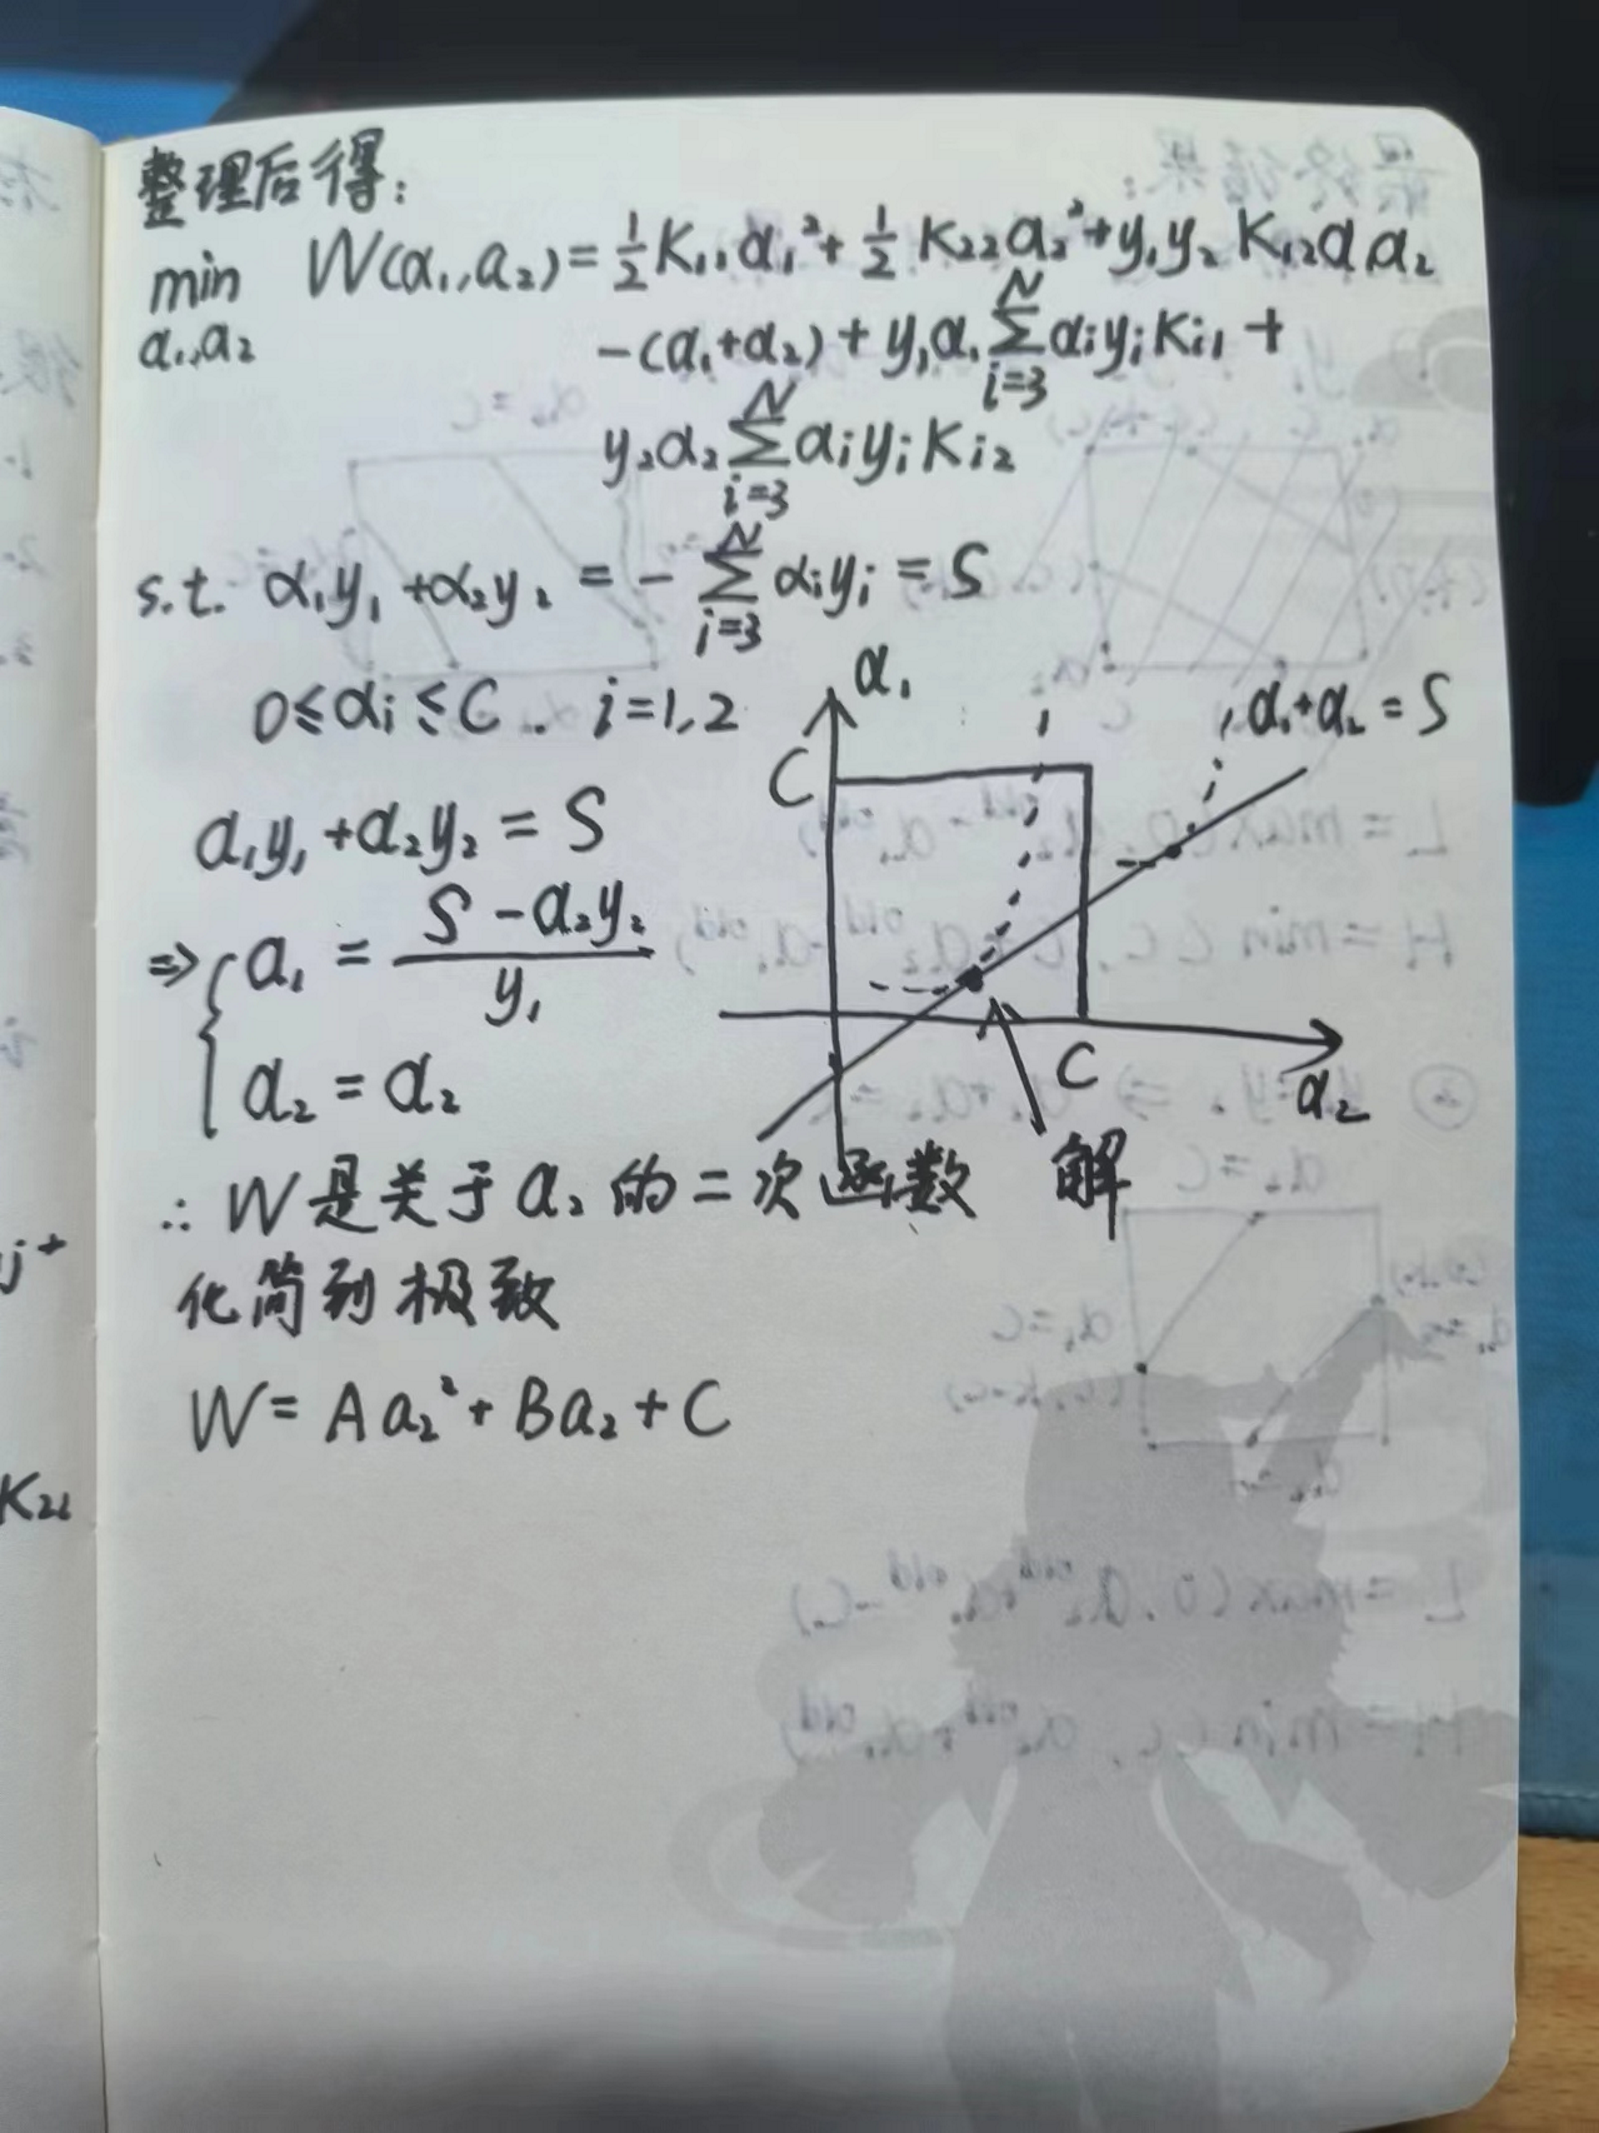 整理后得:
min W(α₁,α₂) = ½K₁₁α₁² + ½K₂₂α₂² + y₁y₂K₁₂α₁α₂
α₁,α₂
-(α₁+α₂) + y₁α₁ Σ_{i=3}^{N} αᵢyᵢKᵢ₁ +
y₂α₂ Σ_{i=3}^{N} αᵢyᵢKᵢ₂
s.t. α₁y₁ + α₂y₂ = - Σ_{i=3}^{N} αᵢyᵢ = S
0 ≤ αᵢ ≤ C . i=1,2
α₁
C
α₁+α₂ = S
C
α₂
解
α₁y₁ + α₂y₂ = S
⇒ { α₁ = (S - α₂y₂) / y₁
α₂ = α₂
∴ W是关于α₂的二次函数
化简到极致
W = Aα₂² + Bα₂ + C
j+
K₂ᵢ